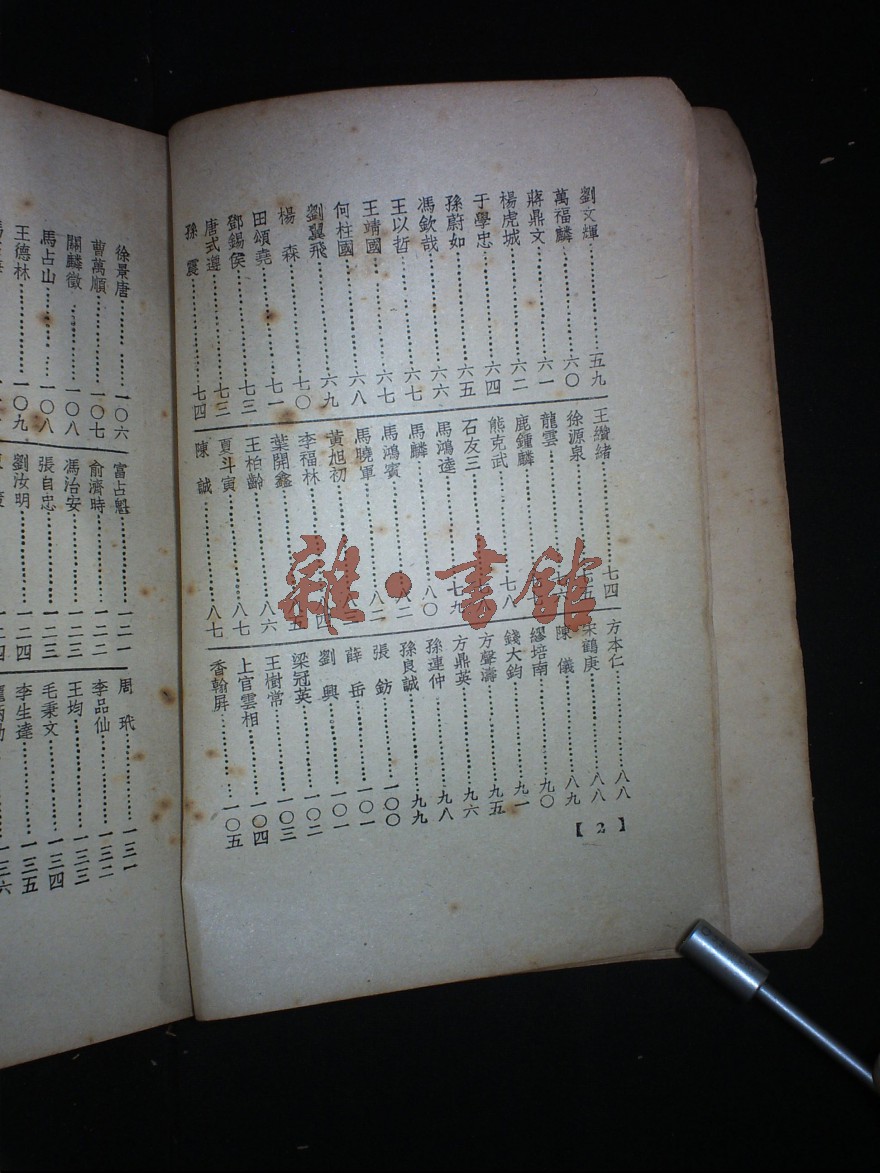 劉文輝………五九
萬福麟………六〇
蔣鼎文………六一
楊虎城………六二
于學忠………六四
孫蔚如………六五
馮欽哉………六六
王以哲………六七
王靖國………六七
何柱國………六八
劉翼飛………六九
楊森………七〇
田頌堯………七一
鄧錫侯………七三
唐式遵………七三
孫震………七四
王纘緒………七四
徐源泉………七五
龍雲………
鹿鍾麟………
熊克武………七八
石友三………
馬鴻逵………七九
馬麟………八〇
馬鴻賓………
馬曉軍………八二
黃旭初………
李福林………
葉開鑫………
王柏齡………八六
夏斗寅………八七
陳誠………八七
方本仁………八八
宋鶴庚………八八
陳儀………八九
繆培南………九〇
錢大鈞………九一
方聲濤………九五
方鼎英………九六
孫連仲………九八
孫良誠………九九
張鈁………一〇〇
薛岳………一〇一
劉興………一〇一
梁冠英………一〇二
王樹常………一〇三
上官雲相………一〇四
香翰屏………一〇五
【2】
徐景唐………一〇六
曹萬順………一〇七
關麟徵………一〇八
馬占山………一〇八
王德林………一〇九
富占魁………一二一
俞濟時………一二二
馮治安………
張自忠………一二三
劉汝明………一二四
周玳………一三一
李品仙………一三二
王均………一三三
毛秉文………一三四
李生達………一三五
雜·書館